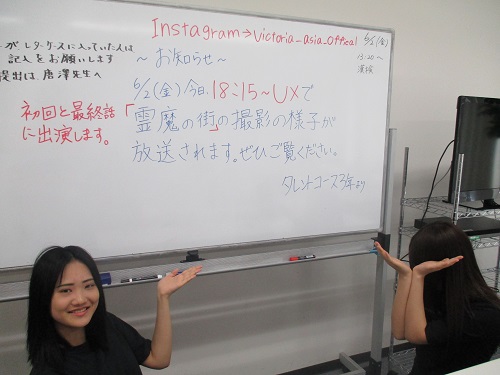 Instagram→Victoria_asia_Offical
6/2(金)
15:20〜
がレターケースに入っていた人は
記入をお願いします
提出は、唐澤先生へ
〜お知らせ〜
6/2(金)今日、18:15〜UXで
「霊魔の街」の撮影の様子が
放送されます。ぜひご覧ください。
初回と最終話
に出演します。
タレントコース3年より